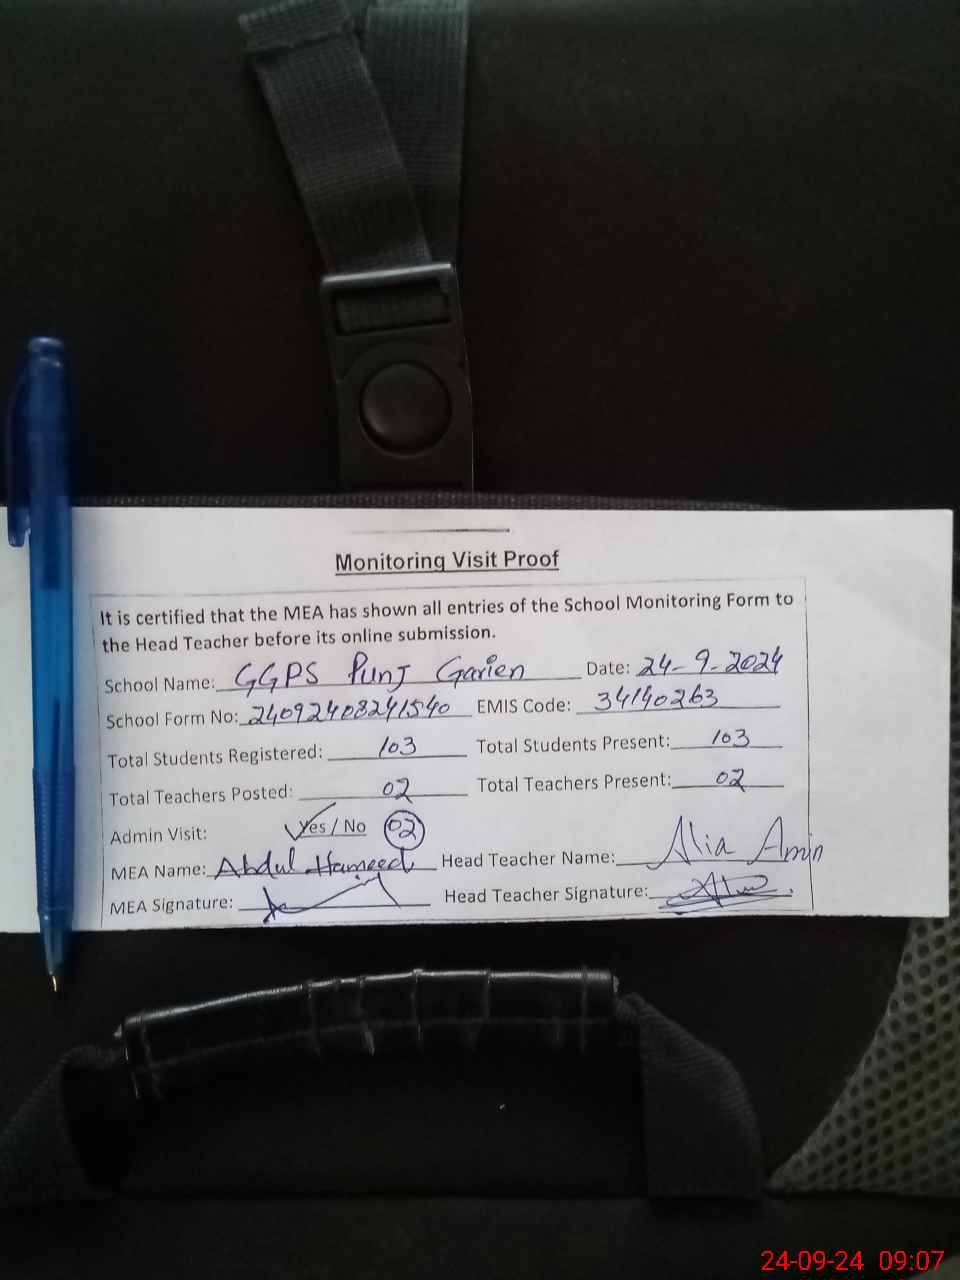 Monitoring Visit Proof
It is certified that the MEA has shown all entries of the School Monitoring Form to
the Head Teacher before its online submission.
School Name: GGPS Punj Garien Date: 24-9-2024
School Form No: 24092408241540 EMIS Code: 34140263
Total Students Registered: 103 Total Students Present: 103
Total Teachers Posted: 02 Total Teachers Present: 02
Admin Visit: Yes / No 02
MEA Name: Abdul Hameed Head Teacher Name: Alia Amin
MEA Signature: Head Teacher Signature:
24-09-24 09:07